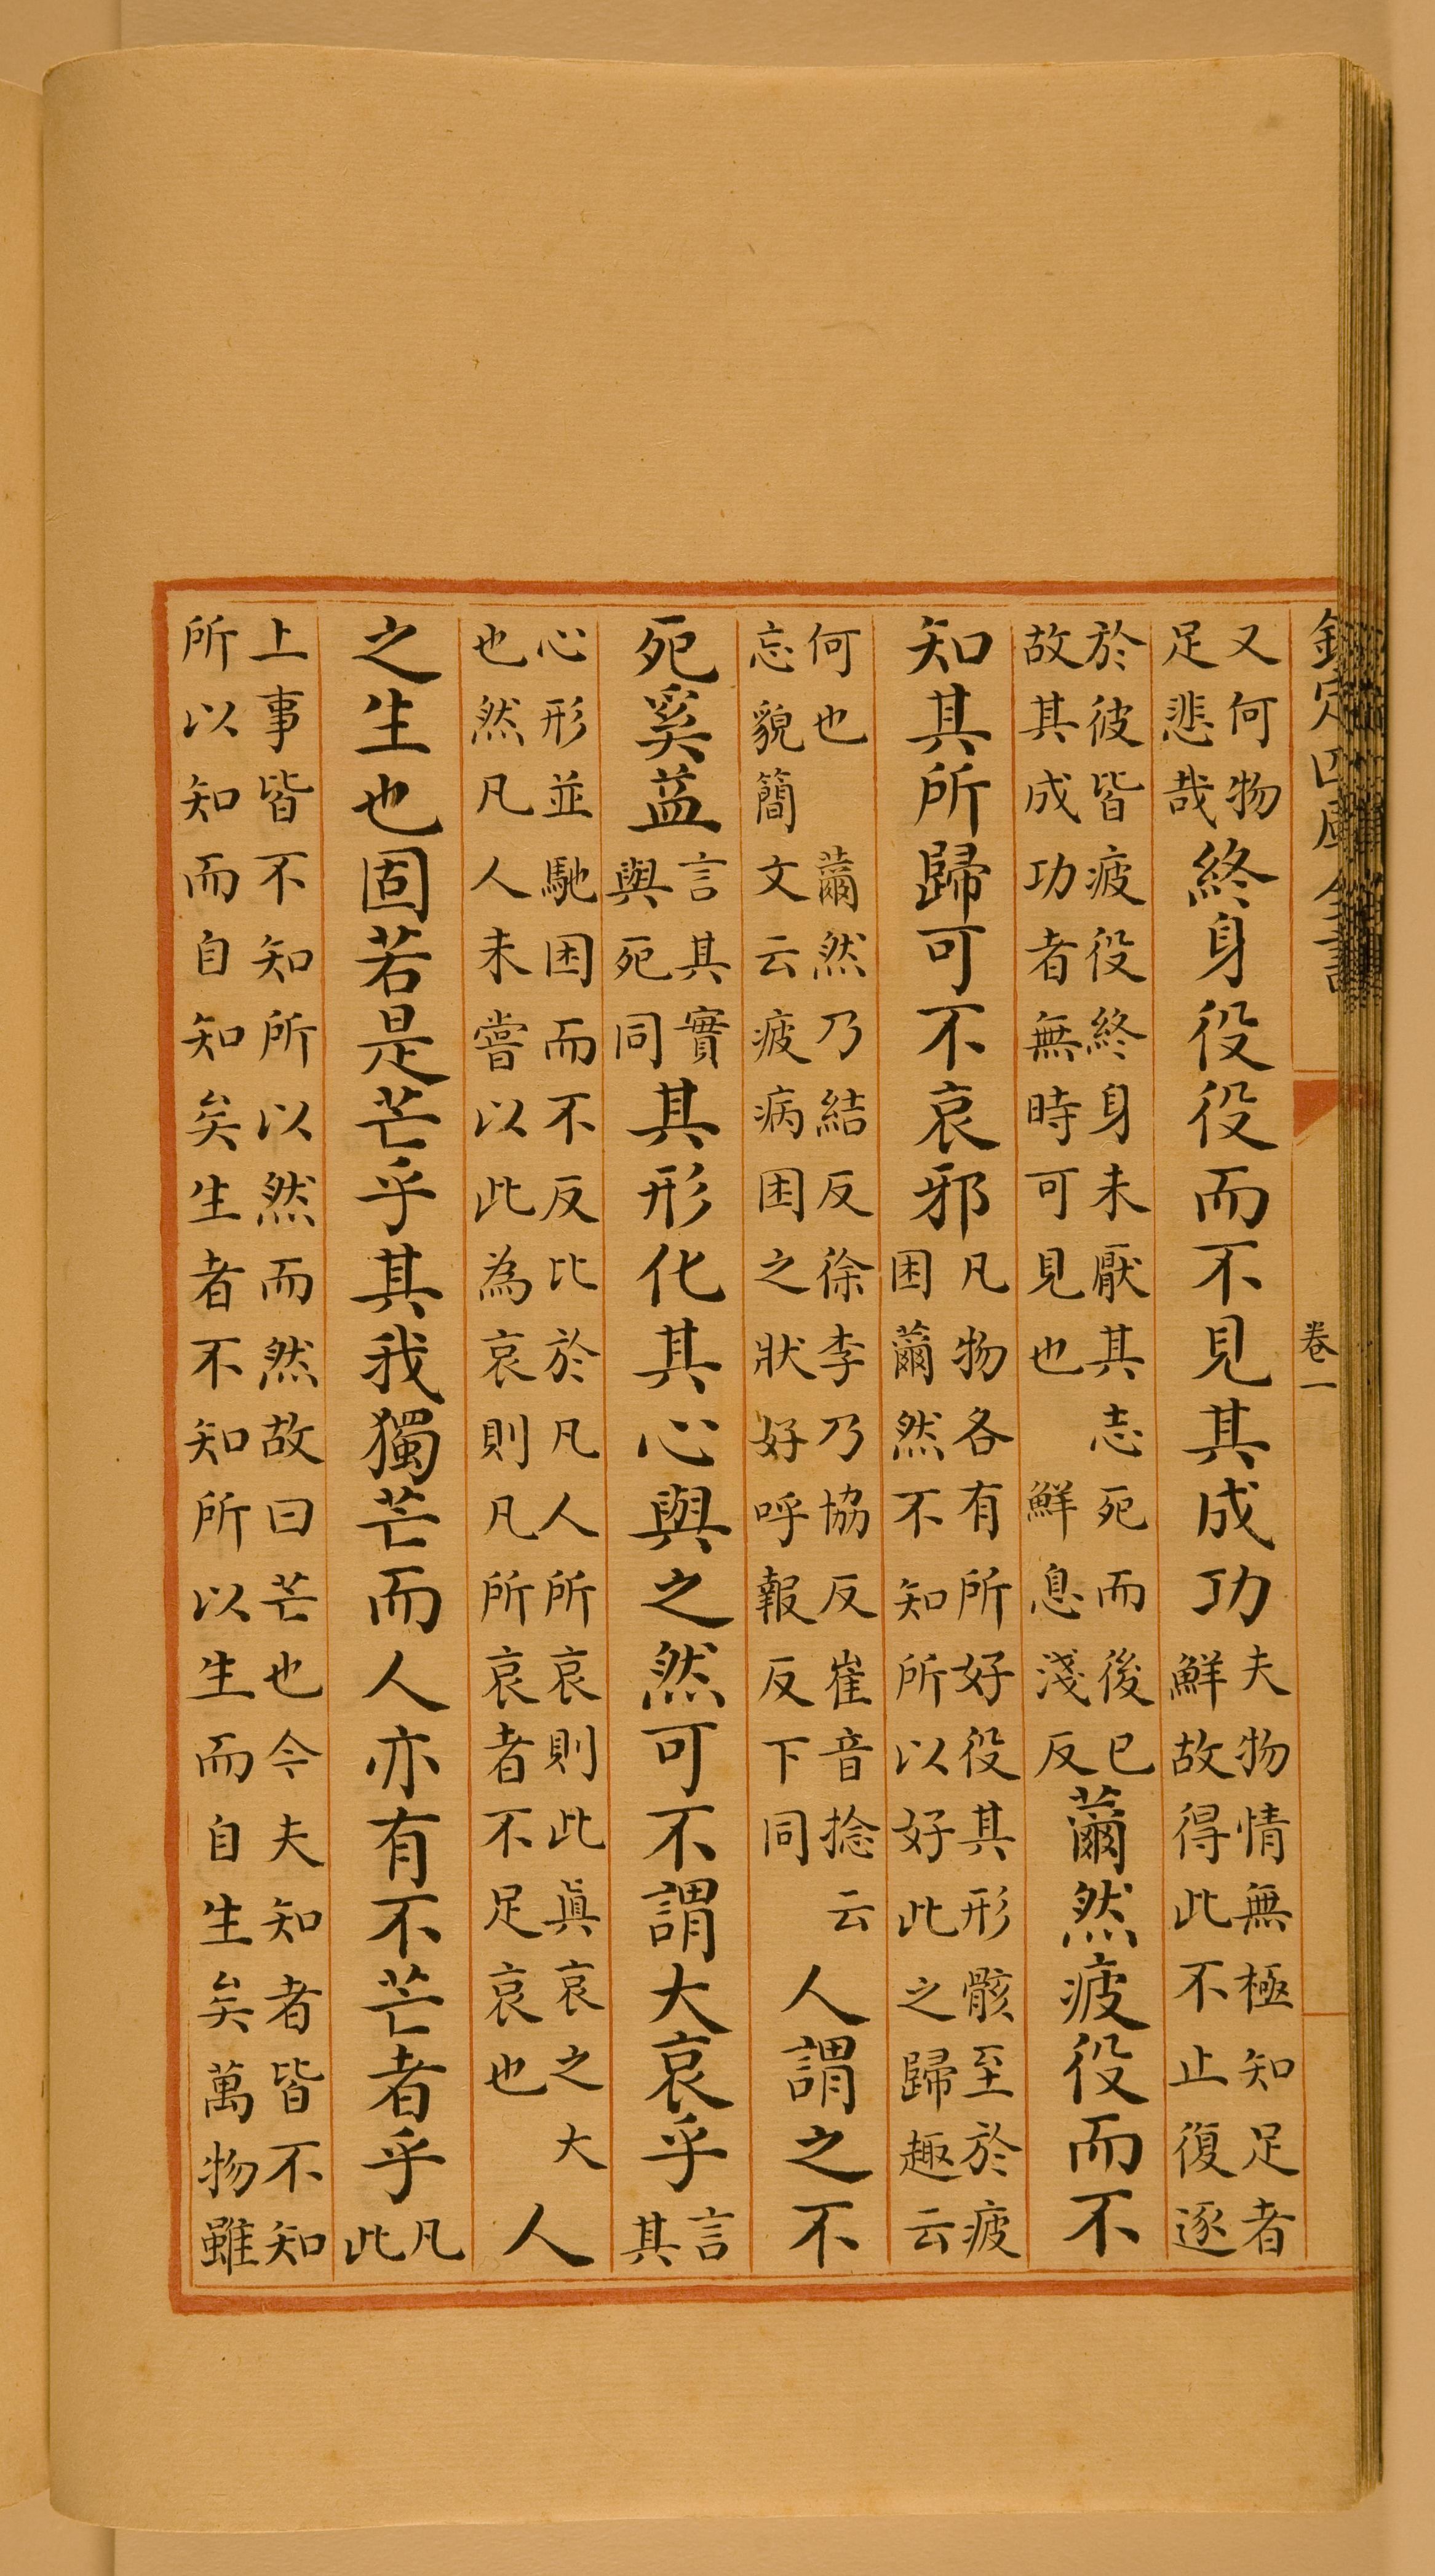 欽定四庫全書
卷一
又何物足悲哉終身役役而不見其成功夫物情無極知足者鮮故得此不止復逐
於彼皆疲役終身未厭其志死而後已故其成功者無時可見也 鮮息淺反薾然疲役而不
知其所歸可不哀邪凡物各有所好役其形骸至於疲困薾然不知所以好此之歸趣云
何也 薾然乃結反徐李乃協反崔音捻云忘貌簡文云疲病困之狀好呼報反下同人謂之不
死奚益言其實與死同其形化其心與之然可不謂大哀乎言其
心形並馳困而不反比於凡人所哀則此真哀之大也然凡人未嘗以此為哀則凡所哀者不足哀也人
之生也固若是芒乎其我獨芒而人亦有不芒者乎凡此
上事皆不知所以然而然故曰芒也今夫知者皆不知所以知而自知矣生者不知所以生而自生矣萬物雖